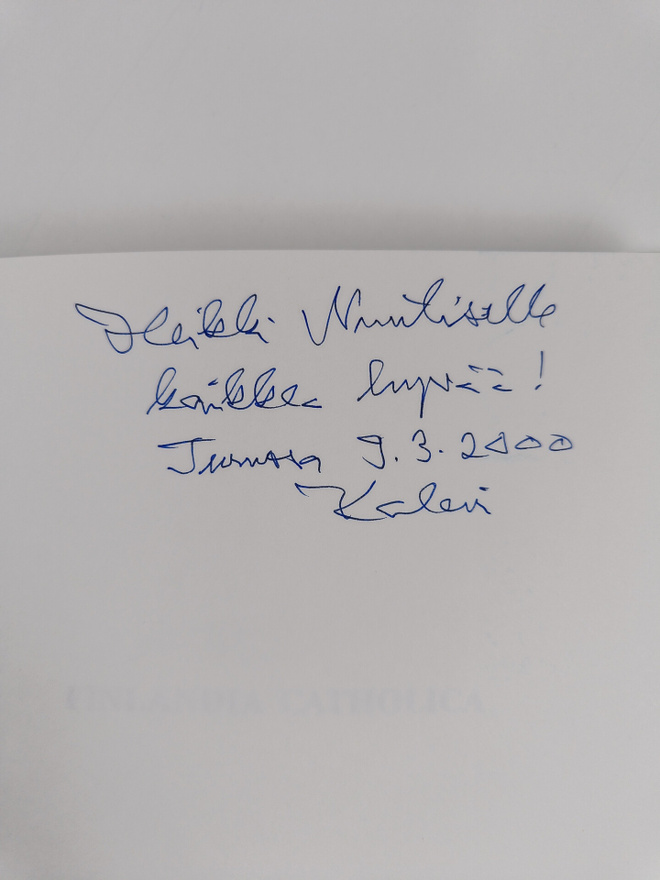 Heikki Nuutiselle
kaikkea hyvää!
Turussa 9.3.2000
Kalevi
FINLANDIA CATHOLICA